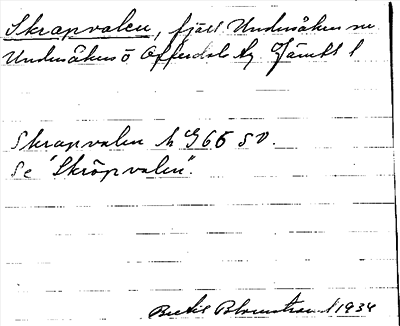 Skrapvalen, fjäll Undersåkers sn
Undersåkers o Offerdals tg Jämtl l
Skrapvalen k G65 SV.
Se "Skröpvalen".
Bertil Blomstrand 1934